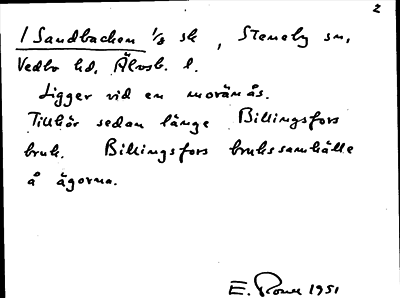 2
/ Sandbacken 1/8 sk , Steneby sn,
Vedbo hd, Älvsb. l.
Ligger vid en moränås.
Tillhör sedan länge Billingsfors
bruk. Billingsfors brukssamhälle
å ägorna.
E. 1951